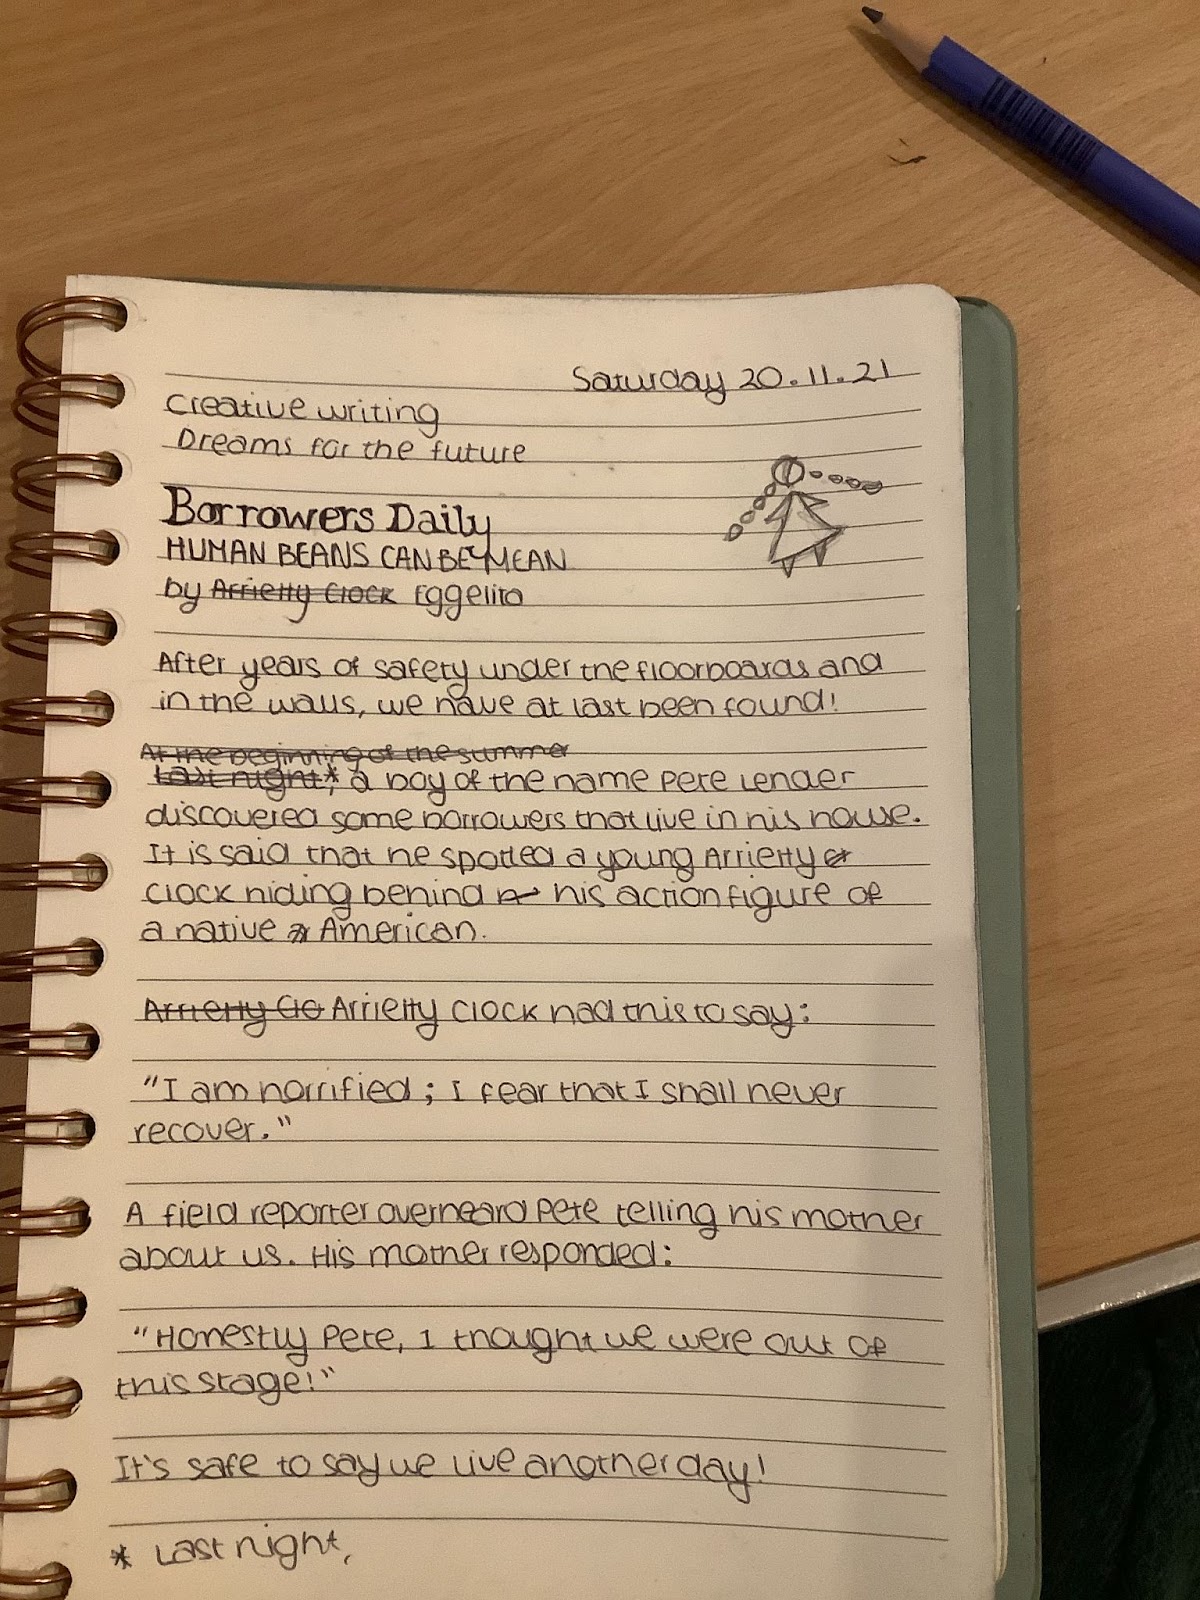 Saturday 20.11.21
Creative writing
Dreams for the future
Borrowers Daily
HUMAN BEANS CAN BE MEAN
by Arrietty Clock Eggelito
After years of safety under the floorboards and
in the walls, we have at last been found!
At the beginning of the summer
Last night,* a boy of the name Pete Lender
discovered some borrowers that live in his house.
It is said that he spotted a young Arrietty
Clock hiding behind his action figure of
a native American.
Arrietty Clo Arrietty Clock had this to say:
"I am horrified; I fear that I shall never
recover."
A field reporter overheard Pete telling his mother
about us. His mother responded:
"Honestly Pete, I thought we were out of
this stage!"
It's safe to say we live another day!
* Last night,